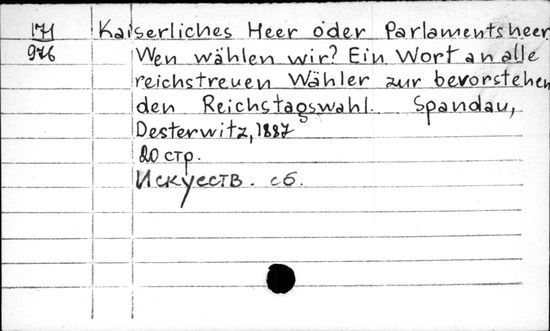 171 Kaiserliches Heer oder Parlamentsheer
976 Wen wählen wir? Ein Wort an alle
reichstreuen Wähler zur bevorstehen
den Reichstagswahl. Spandau,
Oesterwitz, 1887
20 стр.
Искусств. сб.